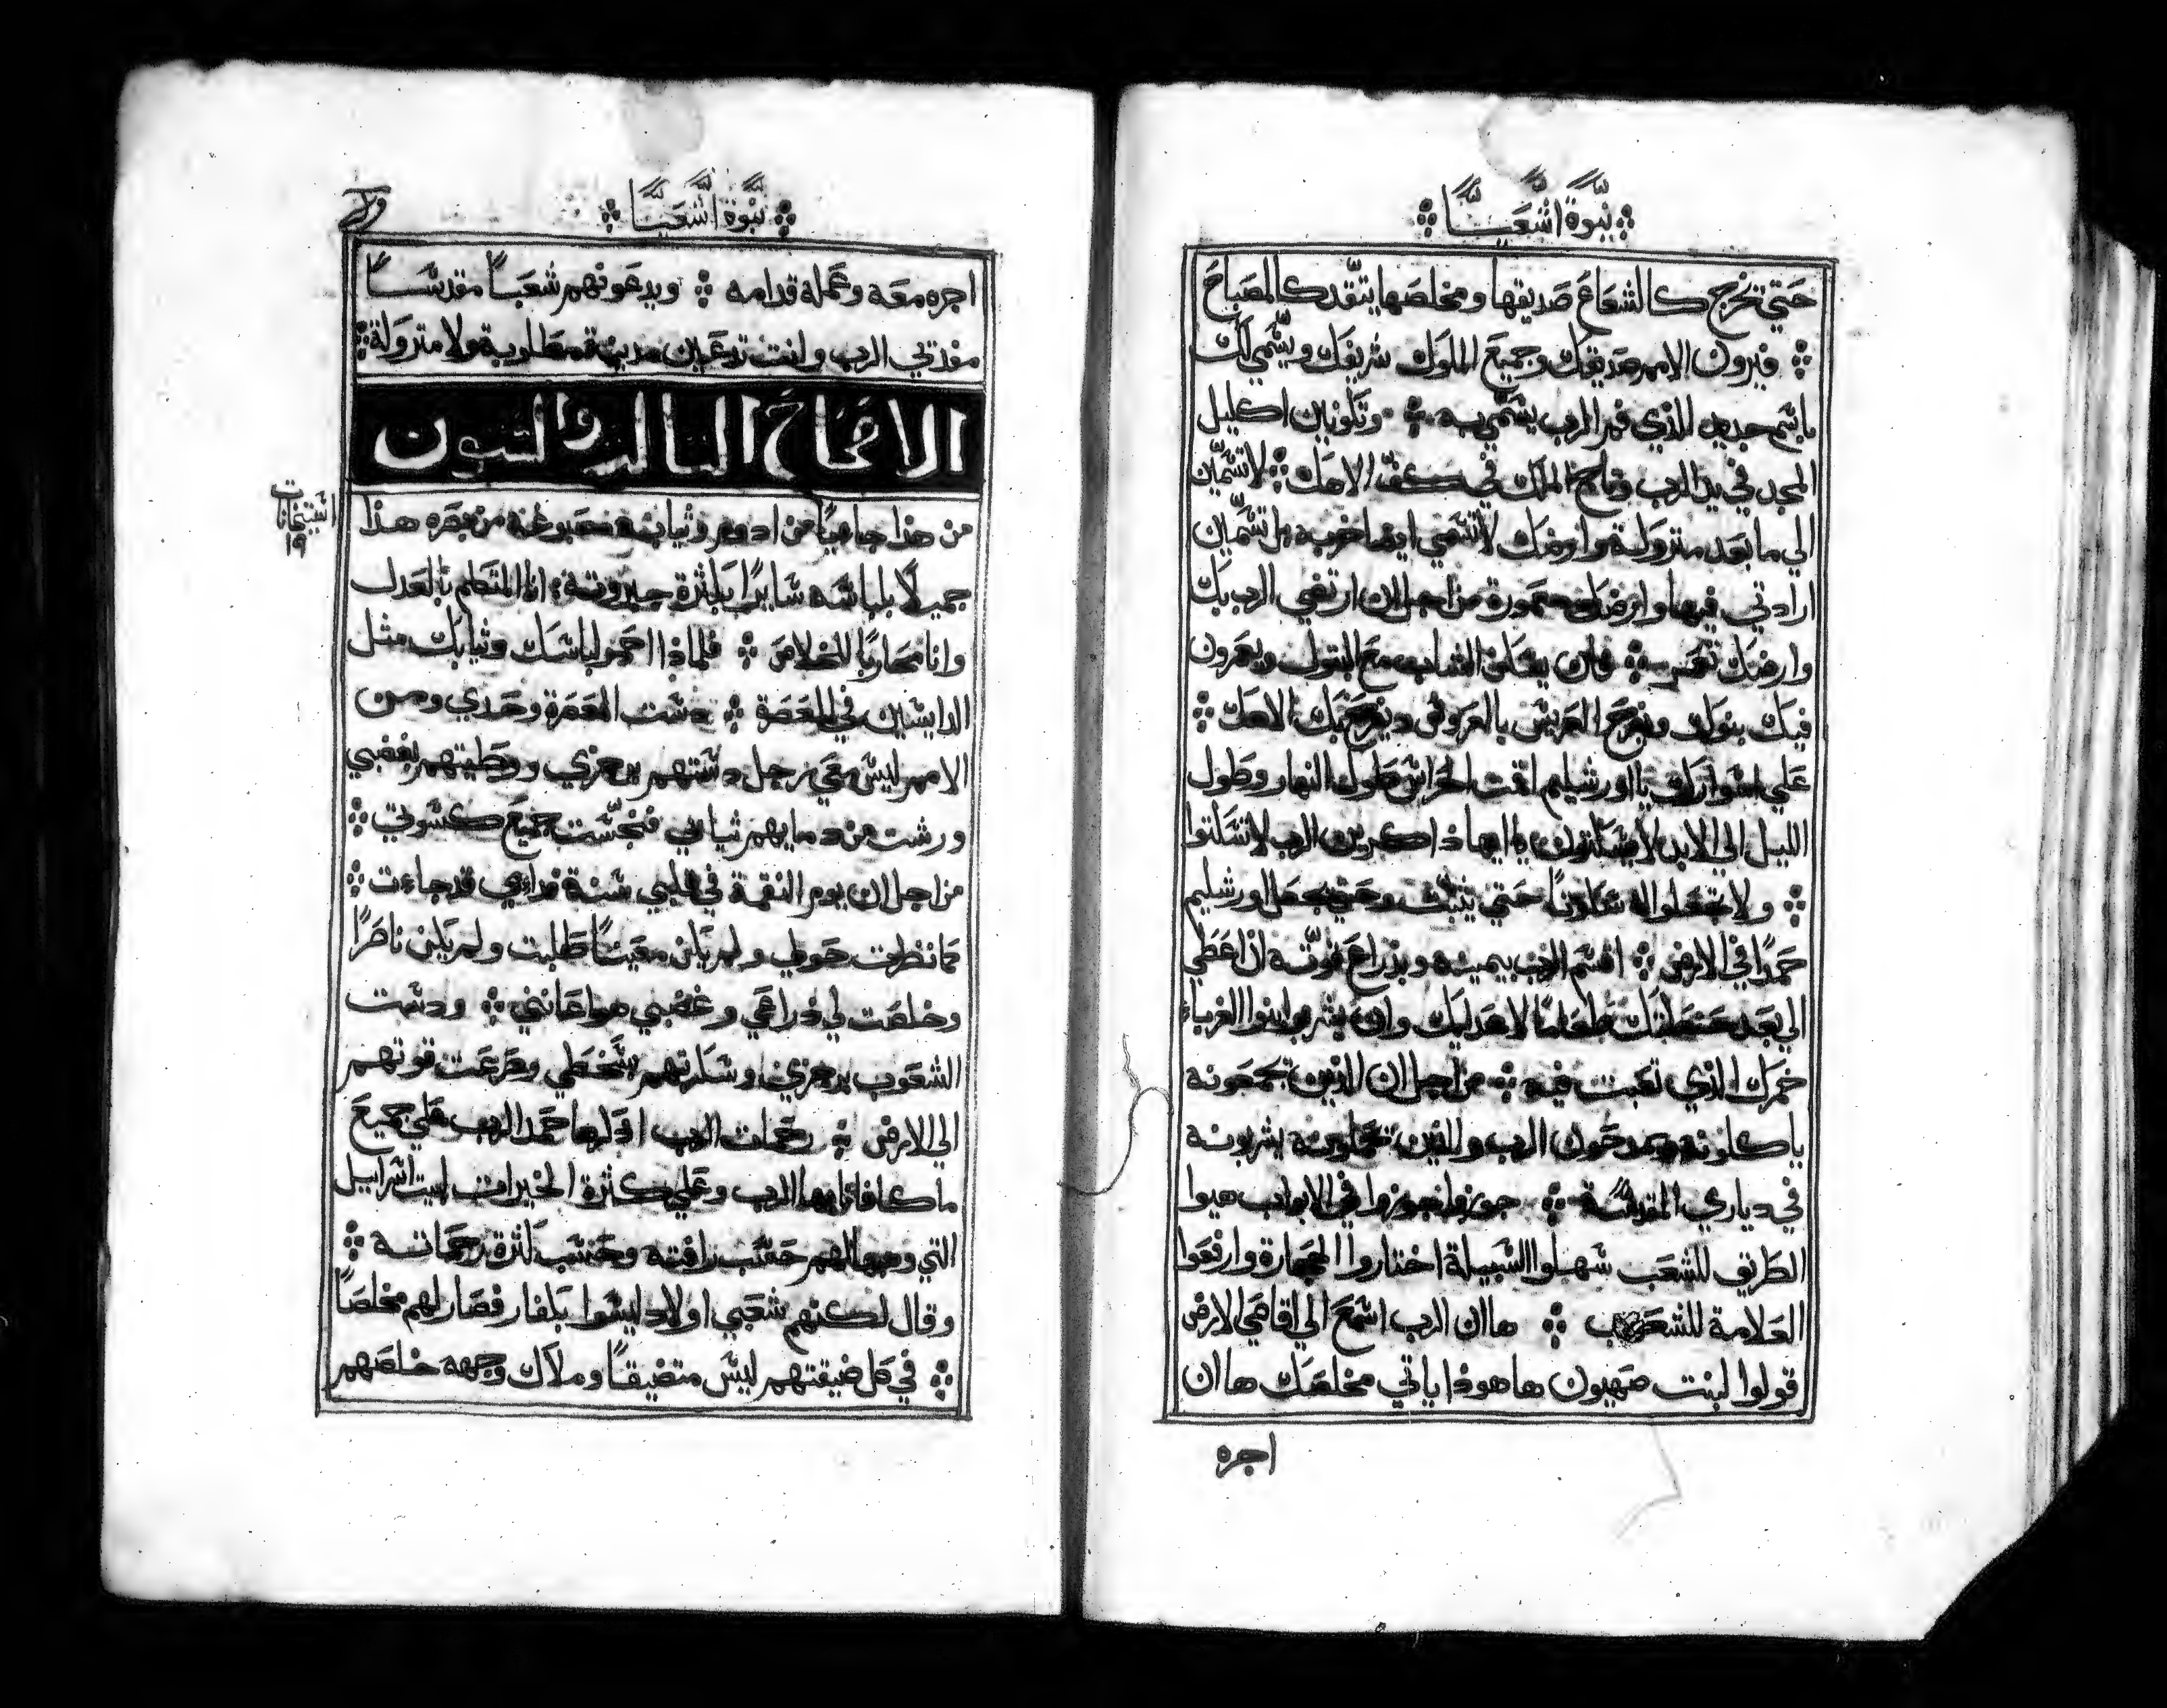 نبوة اشعيا
حتي تخرج كالشعاع صديقها ومخلصها يتقد كالمصباح
فيرون الامم صديقك وجميع الملوك شريفك ويسمي لك
باسم جديد الذي فم الرب يسمي به وتكونين اكليل
المجد في يد الرب وتاج الملك في كف الاهك لا تسمين
الي ما بعد متروكة وارضك لا تسمي ايضا خربه بل تسمين
ارادتي فيها وارضك معمورة من اجل ان ارتضي الرب بك
وارضك تعمر فان يسكن الشاب مع البتول ويعمرون
فيك بنوك ويفرح العريس بالعروس ويفرح بك الاهك
علي اسوارك يا اورشليم اقمت الحراس طول النهار وطول
الليل الي الابد لا يسكتون يا ايها ذاكرين الرب لا تسكتوا
ولا تجعلوا له سكوتا حتي يثبت وحتي يجعل اورشليم
حمدا في الارض اقسم الرب بيمينه وبذراع قوته ان اعطي
الي بعد حنطتك طعاما لاعدايك وان يشربوا بنوا الغرباء
خمرك الذي تعبت فيه من اجل ان الذين تجمعونه
ياكلونه ويمدحون الرب والذين تحملونه يشربونه
في دياري المقدسة جوزوا جوزوا في الابواب هيوا
الطريق للشعب سهلوا السبيلة اختاروا الحجارة وارفعوا
العلامة للشعوب ها ان الرب اسمع الي اقاصي الارض
قولوا لبنت صهيون ها هوذا ياتي مخلصك ها ان
اجره
نبوة اشعيا
اجره معه وعمله قدامه ويدعونهم شعبا مقدسا
مفدتي الرب وانت تدعين مدينة مطلوبة ولا متروكة
الاصحاح الثالث والستون
من هذا جاييا من ادوم وثيابه مصبوغه من بصره هذا
جميلا بلباسه سايرا بكثرة جبروته انا المتكلم بالعدل
وانا محاربا للخلاص فلماذا احمر لباسك وثيابك مثل
الدايسين في المعصرة دست المعصرة وحدي ومن
الامم ليس معي رجل دستهم برجزي ووطيتهم بغضبي
ورشت من دمايهم ثيابي فنجست جميع كسوتي
من اجل ان يوم النقمة في قلبي سنة فداءي قد جاءت
فانظرت حولي ولم يكن معينا طلبت ولم يكن ناصرا
وخلصت لي ذراعي وغضبي هو اعانني ودست
الشعوب برجزي وسكرتهم بسخطي وصرعت قوتهم
الي الارض رحمات الرب اذكرها حمد الرب علي جميع
ما كافانا بها الرب وعلي كثرة الخيرات لبيت اسراييل
التي وهبها لهم حسب رافته وحسب كثرة رحماته
وقال لكنهم شعبي اولاد ليسوا بكفار فصار لهم مخلصا
في كل ضيقتهم ليس متضيقا وملاك وجهه خلصهم
١٩